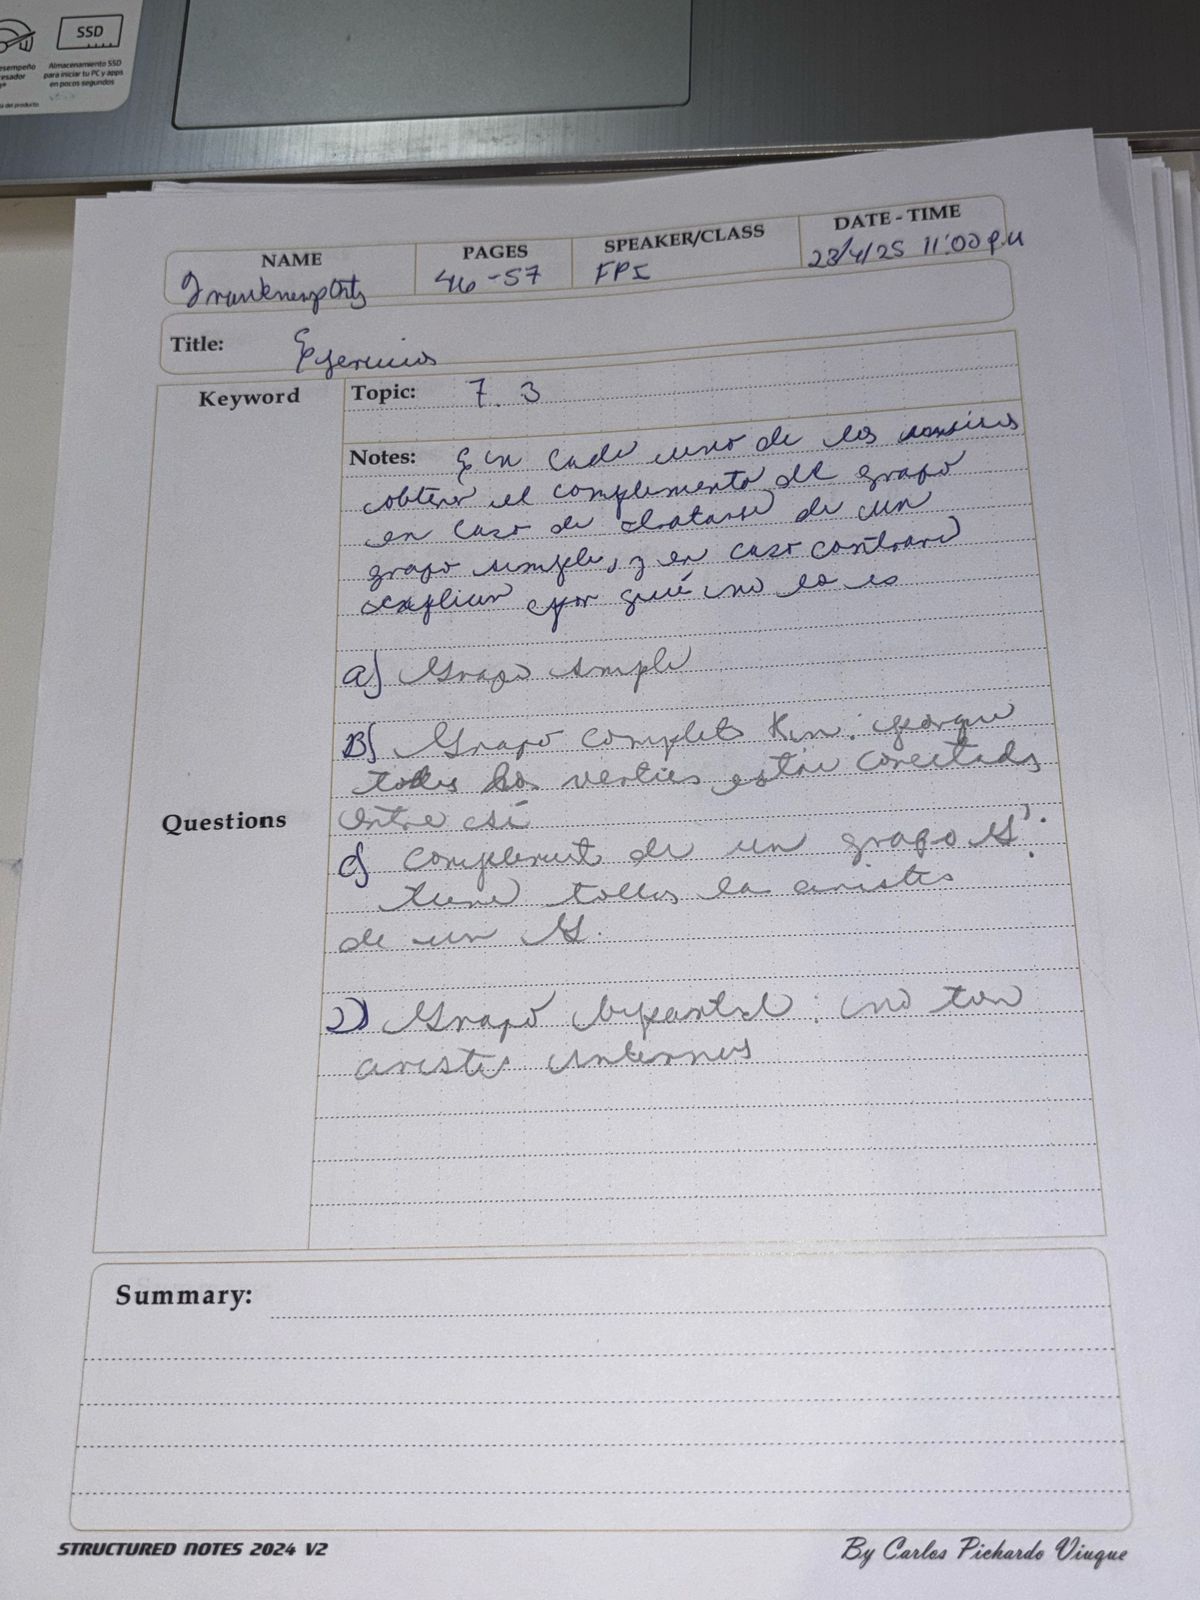 SSD
Almacenamiento SSD
para iniciar tu PC y apps
en pocos segundos
NAME
PAGES
SPEAKER/CLASS
DATE - TIME
46-57
FPI
23/4/25 11:00 p.m
Title:
Keyword
Topic: 7.3
Notes: En cada uno de los
obtener el complemento del grafo
en caso de tratarse de un
grafo simple, y en caso contrario
explicar por qué no lo es
a) Grafo simple
B) Grafo completo Kn: porque
todos los vertices están conectados
entre sí
Questions
c) Complement de un grafo G':
tiene todas la aristas
de un G.
D) Grafo bipartid: no ten
aristas internas
Summary:
STRUCTURED NOTES 2024 V2
By Carlos Pichardo Viuque